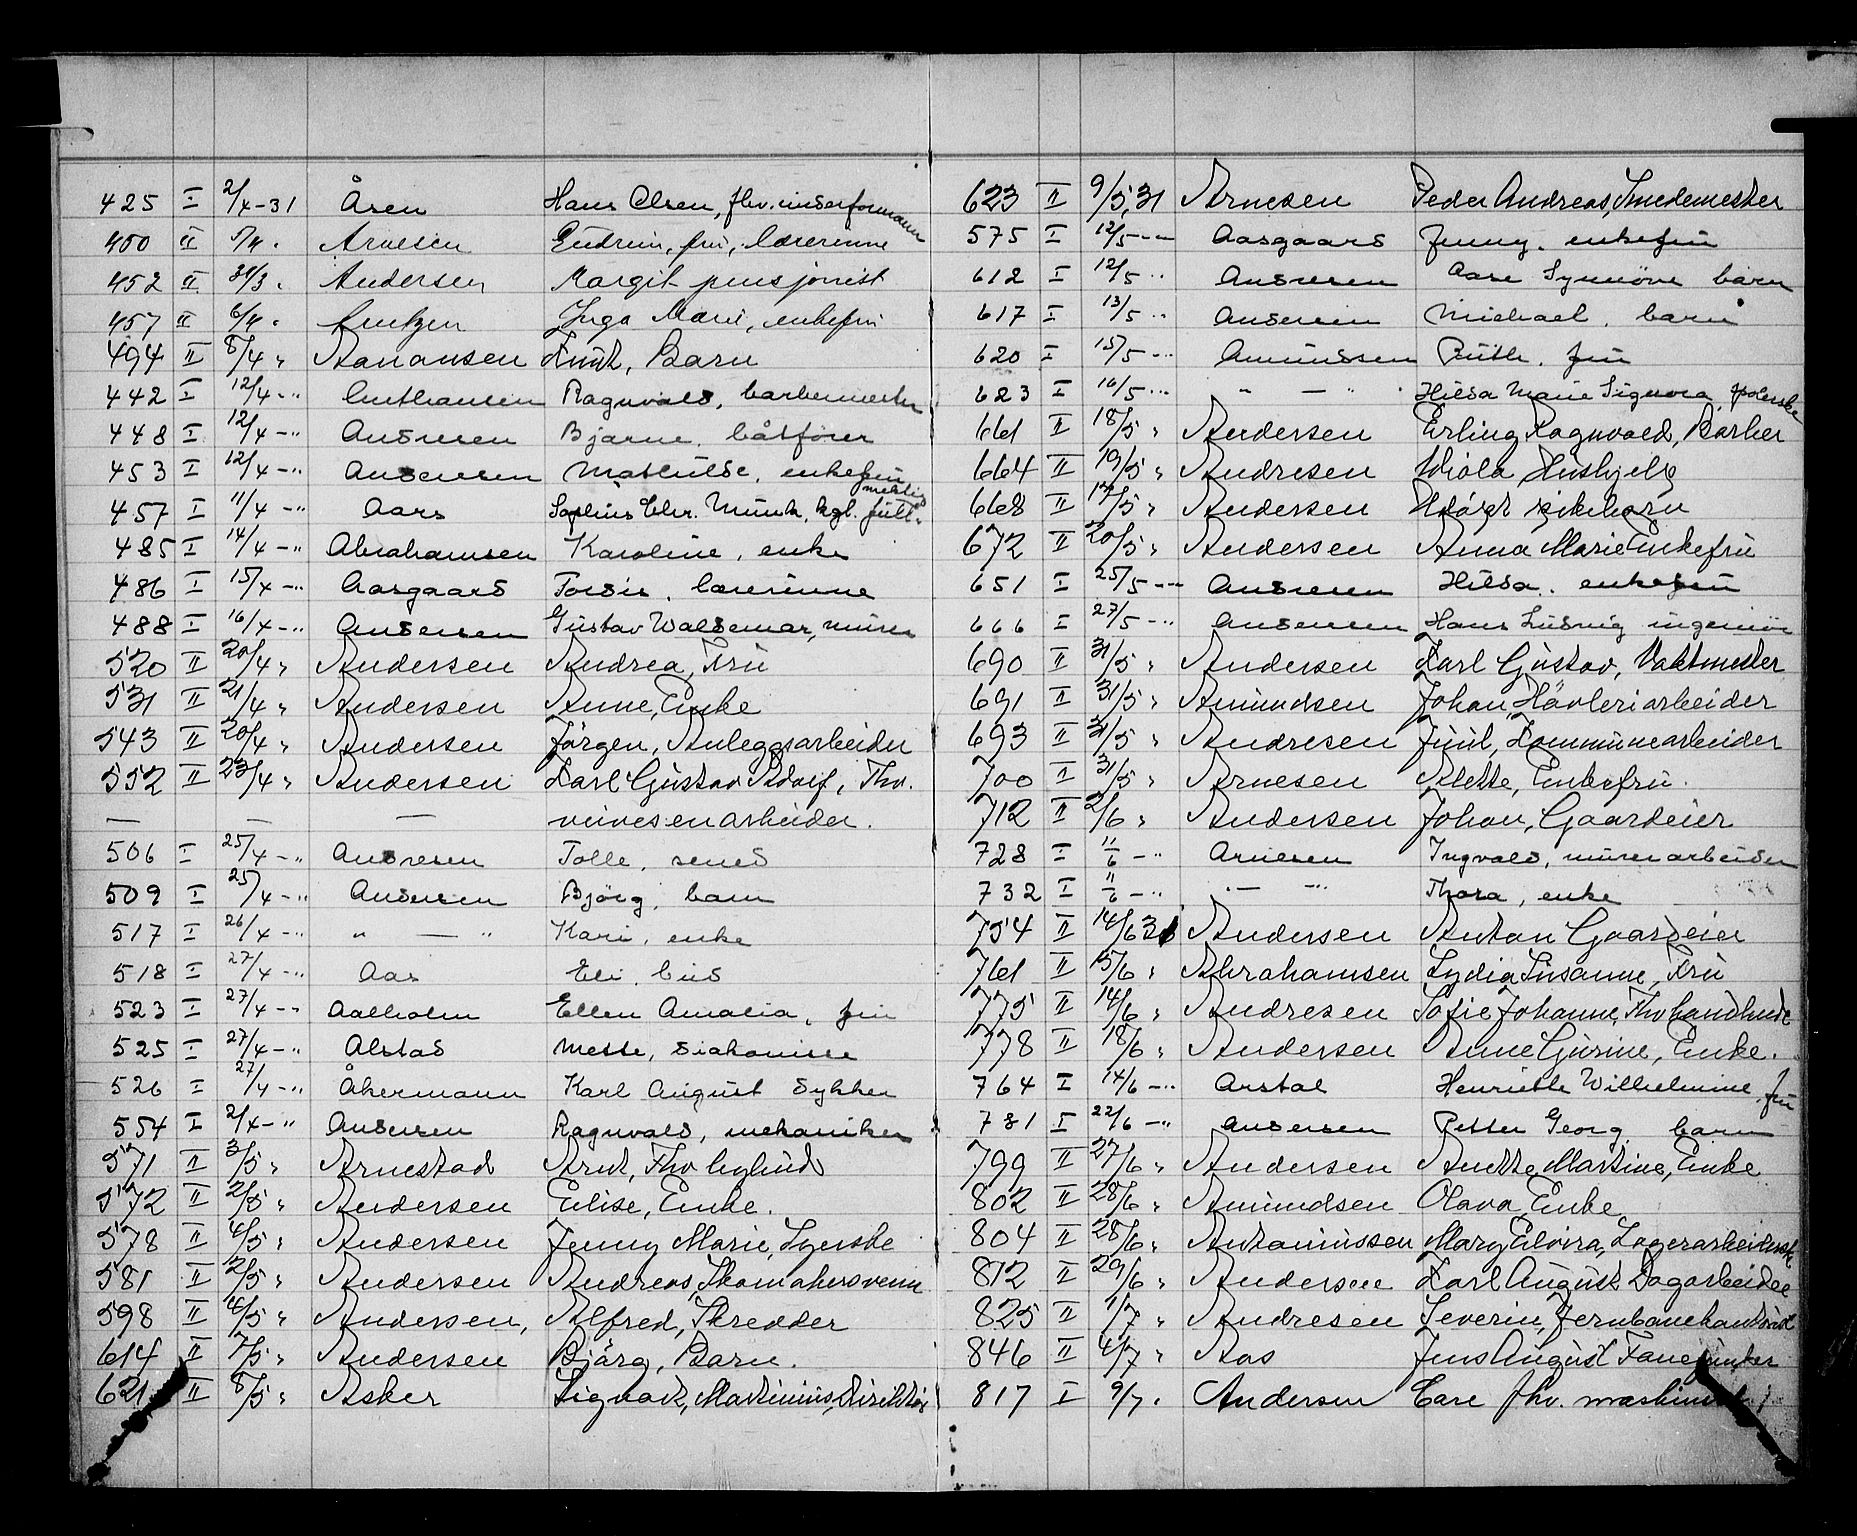 425 I 2/4-31 Åsen Hans Olsen, fhv.
450 II 5/4 . Arnesen fru, lærerinne
452 II 31/3 . Andersen Margit pensjonist
457 II 6/4 . Arntzen Inga Marie, enkefru
494 II 8/4 " Aanonsen Knut, Barn
442 I 12/4 -" Anthonsen Ragnvald, barbermester
448 I 12/4 -" Andresen Bjarne, båtfører
453 I 12/4 -" Andersen Mathilde, enkefru
457 I 11/4 -" Aars Sophus Chr. Munk, kgl. fullmektig
485 I 14/4 -" Abrahamsen Karoline, enke
486 I 15/4 -" Aasgaard Tordis, lærerinne
488 I 16/4 -" Andersen Gustav Waldemar, murer
520 II 20/4 " Andersen Andrea, Fru
531 II 21/4 " Andersen Anne, Enke
543 II 20/4 " Andersen Jörgen, Anleggsarbeider
552 II 23/4 " Andersen Karl Gustav Adolf, Fhv.
— — — veivesenarbeider.
506 I 25/4 -" Andresen Tolle,
509 I 25/4 -" Andersen Björg, barn
517 I 26/4 -" " — " Kari, enke
518 I 27/4 -" Aas Eli,
523 I 27/4 -" Aalholm Ellen Amalia, fru
525 I 27/4 -" Alstad Mette, diakonisse
526 I 27/4 -" Åkermann Karl August dykker
554 I 2/4 -" Andersen Ragnvald, mekaniker
571 II 3/5 " Arnestad Arnt, Fhv
572 II 2/5 " Andersen Elise, Enke.
578 II 4/5 " Andersen Jenny Marie, Syerske
581 II 2/5 " Andersen Andreas, Skomakersvenn
598 II 4/5 " Andersen, Alfred, Skredder
614 II 7/5 " Andersen Bjärg, Barn.
621 II 8/5 " Asker Sigvart, Martinius, Direktör
623 II 9/5 31 Arnesen Peder Andreas, Smedemester
575 I 12/5 -" Aasgaard Jenny. enkefru
612 I 12/5 " Andresen Aase Synnöve barn
617 I 13/5 " Andersen Michael, barn
620 I 15/5 -" Amundsen Ruth, fru
623 I 16/5 " " — " Hilda Marie Signora,
661 II 18/5 " Andersen Erling Ragnvald, Barber
664 II 19/5 " Andresen
668 II 17/5 " Andersen pikebarn
672 II 20/5 " Andersen Anna Marie Enkefru
651 I 25/5 -- Andresen Hilda. enkefru
666 I 27/5 -" Andersen Hans Ludvig ingeniør
690 II 31/5 " Andersen Karl Gustav, Vaktmester
691 II 31/5 " Amundsen Johan, Hävleriarbeider
693 II 31/5 " Andresen Juul, Kommunearbeider
700 II 31/5 " Arnesen Alette, Enkefru.
712 II 2/6 " Andersen Johan, Gaardeier
728 I 11/6 -" Arnesen Ingvald, murerarbeider
732 I 11/6 -" " — " Thora, enke
754 II 14/6 31 Andersen Anton Gaardeier
761 II 15/6 " Abrahamsen Lydia Susanne, Fru
775 II 14/6 " Andresen Sofie Johanne, Fhv
778 II 18/6 " Andersen Anne Gurine, Enke.
764 I 14/6 -" Arstal Henriette Wilhelmine, fru
781 I 22/6 -" Andersen Petter Georg, barn
799 II 27/6 " Andersen Anette Martine, Enke
802 II 28/6 " Amundsen Olava, Enke
804 II 28/6 " Antoniussen Mary Elvira, Lagerarbeiderske
812 II 29/6 " Andersen Karl August Dagarbeider
825 II 1/7 " Andresen Severin,
846 II 4/7 " Aas Jens August Fanejunker
817 I 9/7 . Andersen fhv. maskinist